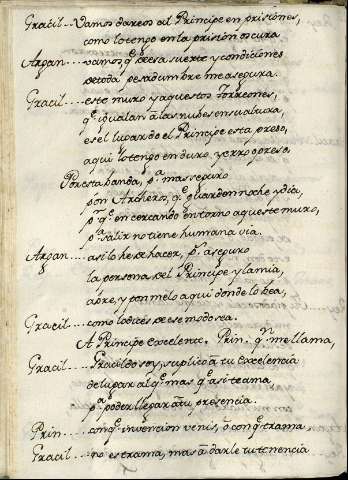 Gracil.. Vamos daremos al Principe en prisiones,
como lo tengo en la prision oscura
Argan.... vamos q̃ de esa suerte y condiciones
de toda pesadumbre me asegura.
Gracil.... este muro y aquestos Torreones,
q̃ igualan a las nubes en su altura,
es el lugar do el Principe esta preso,
aqui lo tengo en duro yerro opreso.
Por esta banda, pª mas seguro
pon Archeros, q̃ guarden noche y dia,
pʳ q̃ en cercando entorno aqueste muro,
pª salir no tiene humana via.
Argan... asi lo he de hacer, pʳ aseguro
la persona del Principe y la mia,
abre, y ponmelo aqui donde lo vea,
Gracil.... como lo dices de ese modo sea.
A Principe excelente. Prin. qⁿ me llama,
Gracil.... Gracildo soy, suplico a tu Excelencia
de lugar al q̃ mas q̃ asi te ama
pª poder llegar a tu presencia.
Prin..... con q̃ invencion venis, o con q̃ trama,
Gracil.... no es trama, mas a darle tu tenencia